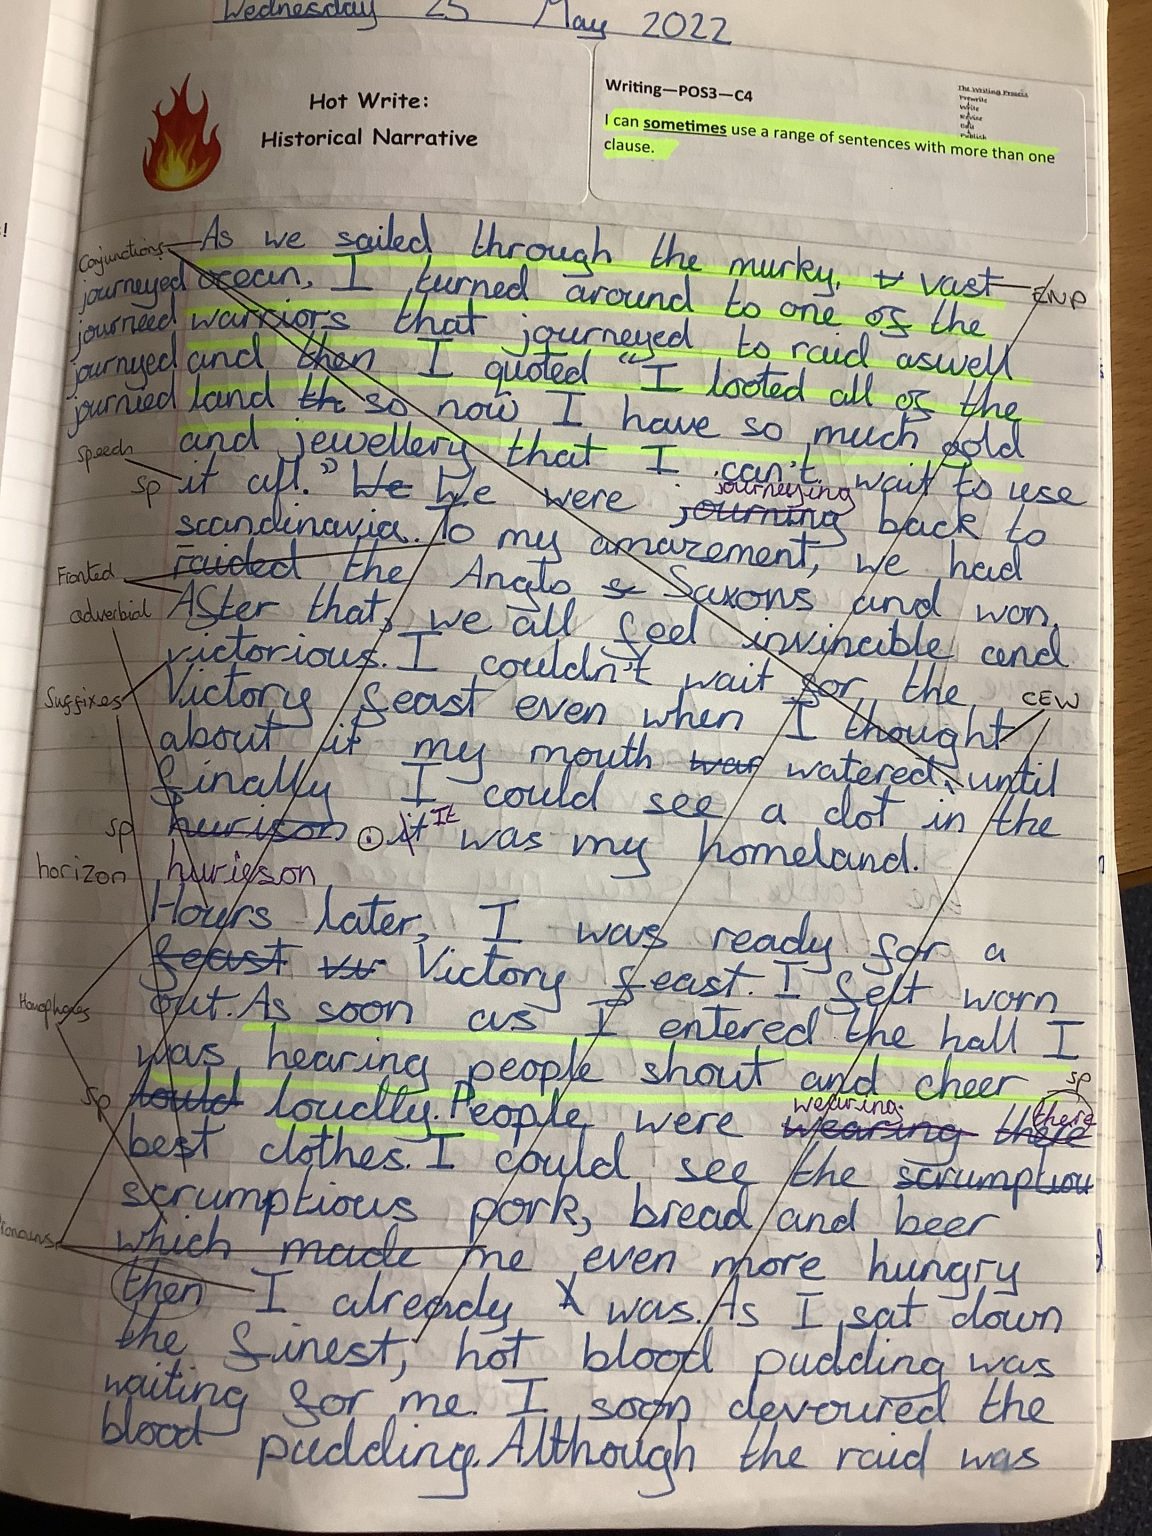 Wednesday 25 May 2022
Hot Write:
Historical Narrative
Writing—POS3—C4
I can sometimes use a range of sentences with more than one
clause.
The Writing Process
Prewrite
Write
Revise
Edit
Publish
Conjunctions
As we sailed through the murky, v vast
ENP
journeyed
ocean, I turned around to one of the
journeed
warriors that journeyed to raid aswell
journyed
and then I quoted "I looted all of the
journied
land th so now I have so much gold
speech
and jewellery that I can't wait to use
sp
it all." We We were journing back to
journeying
scandinavia. To my amazement, we had
Fronted
adverbial
raided the Anglo s Saxons and won.
After that, we all feel invincible and
Suffixes
victorious. I couldn't wait for the
CEW
Victory feast even when I thought
about it my mouth war watered, until
finally I could see a dot in the
sp
hurison . it It was my homeland.
horizon
hurieson
Hours later, I was ready for a
feast Victory feast. I felt worn
Homophones
out. As soon as I entered the hall I
was hearing people shout and cheer
sp
sp
lould loudly. People were wearing there
wearing
there
best clothes. I could see the scrumptiou
scrumptious pork, bread and beer
Pronouns
which made me even more hungry
then I already was. As I sat down
the finest, hot blood pudding was
waiting for me. I soon devoured the
blood pudding. Although the raid was